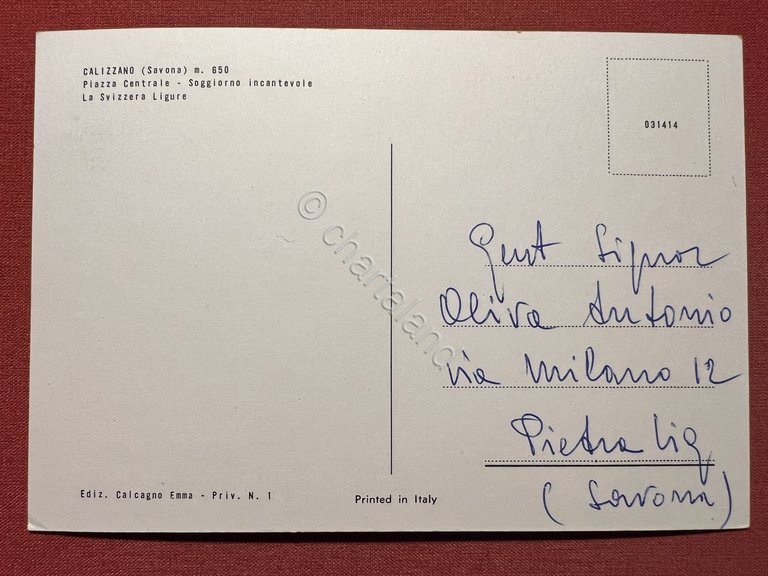 CALIZZANO (Savona) m. 650
Piazza Centrale - Soggiorno incantevole
La Svizzera Ligure
031414
© chartaland
Gent Signor
Oliva Antonio
via Milano 12
Pietra Lig
(Savona)
Ediz. Calcagno Emma - Priv. N. 1
Printed in Italy